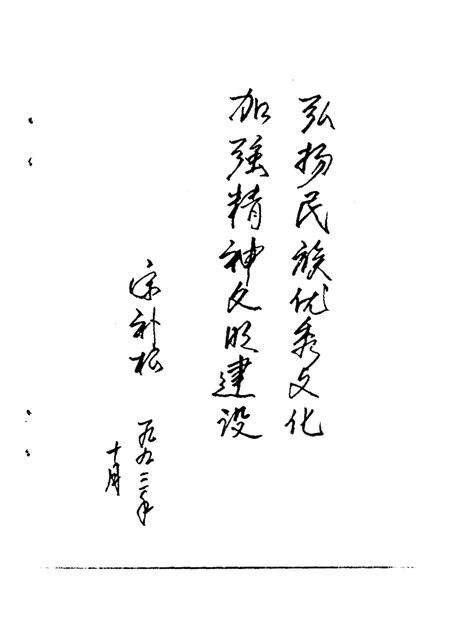 弘扬民族优秀文化
加强精神文明建设
宋补松
一九九三年
十月